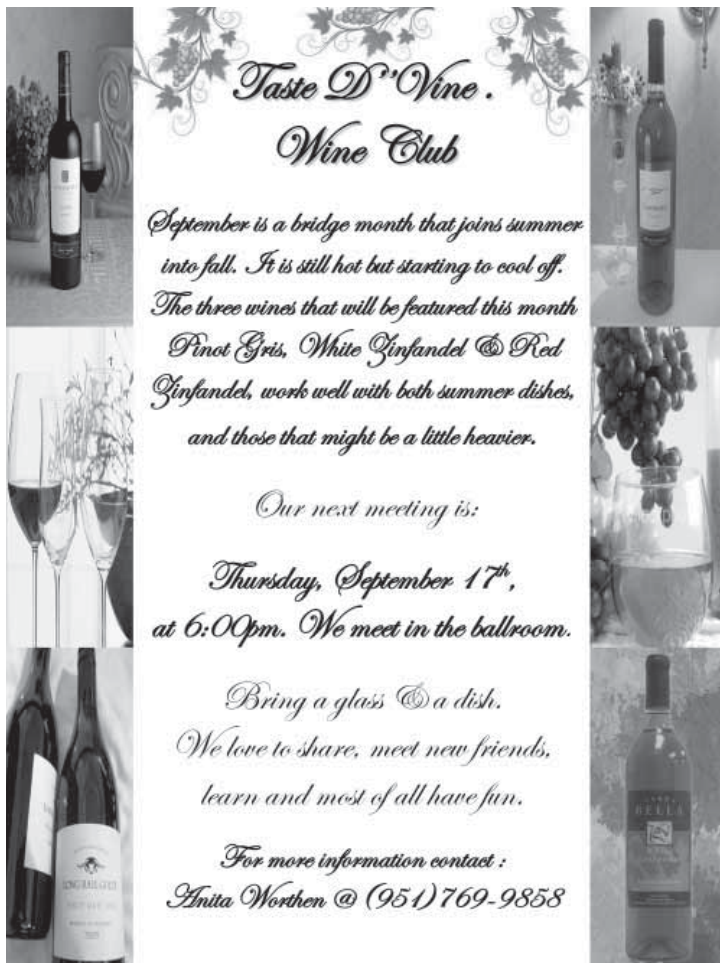 Taste D''Vine .
Wine Club
September is a bridge month that joins summer
into fall. It is still hot but starting to cool off.
The three wines that will be featured this month
Pinot Gris, White Zinfandel & Red
Zinfandel, work well with both summer dishes,
and those that might be a little heavier.
Our next meeting is:
Thursday, September 17th,
at 6:00pm. We meet in the ballroom.
Bring a glass & a dish.
We love to share, meet new friends,
learn and most of all have fun.
For more information contact :
Anita Worthen @ (951)769-9858
BELLA